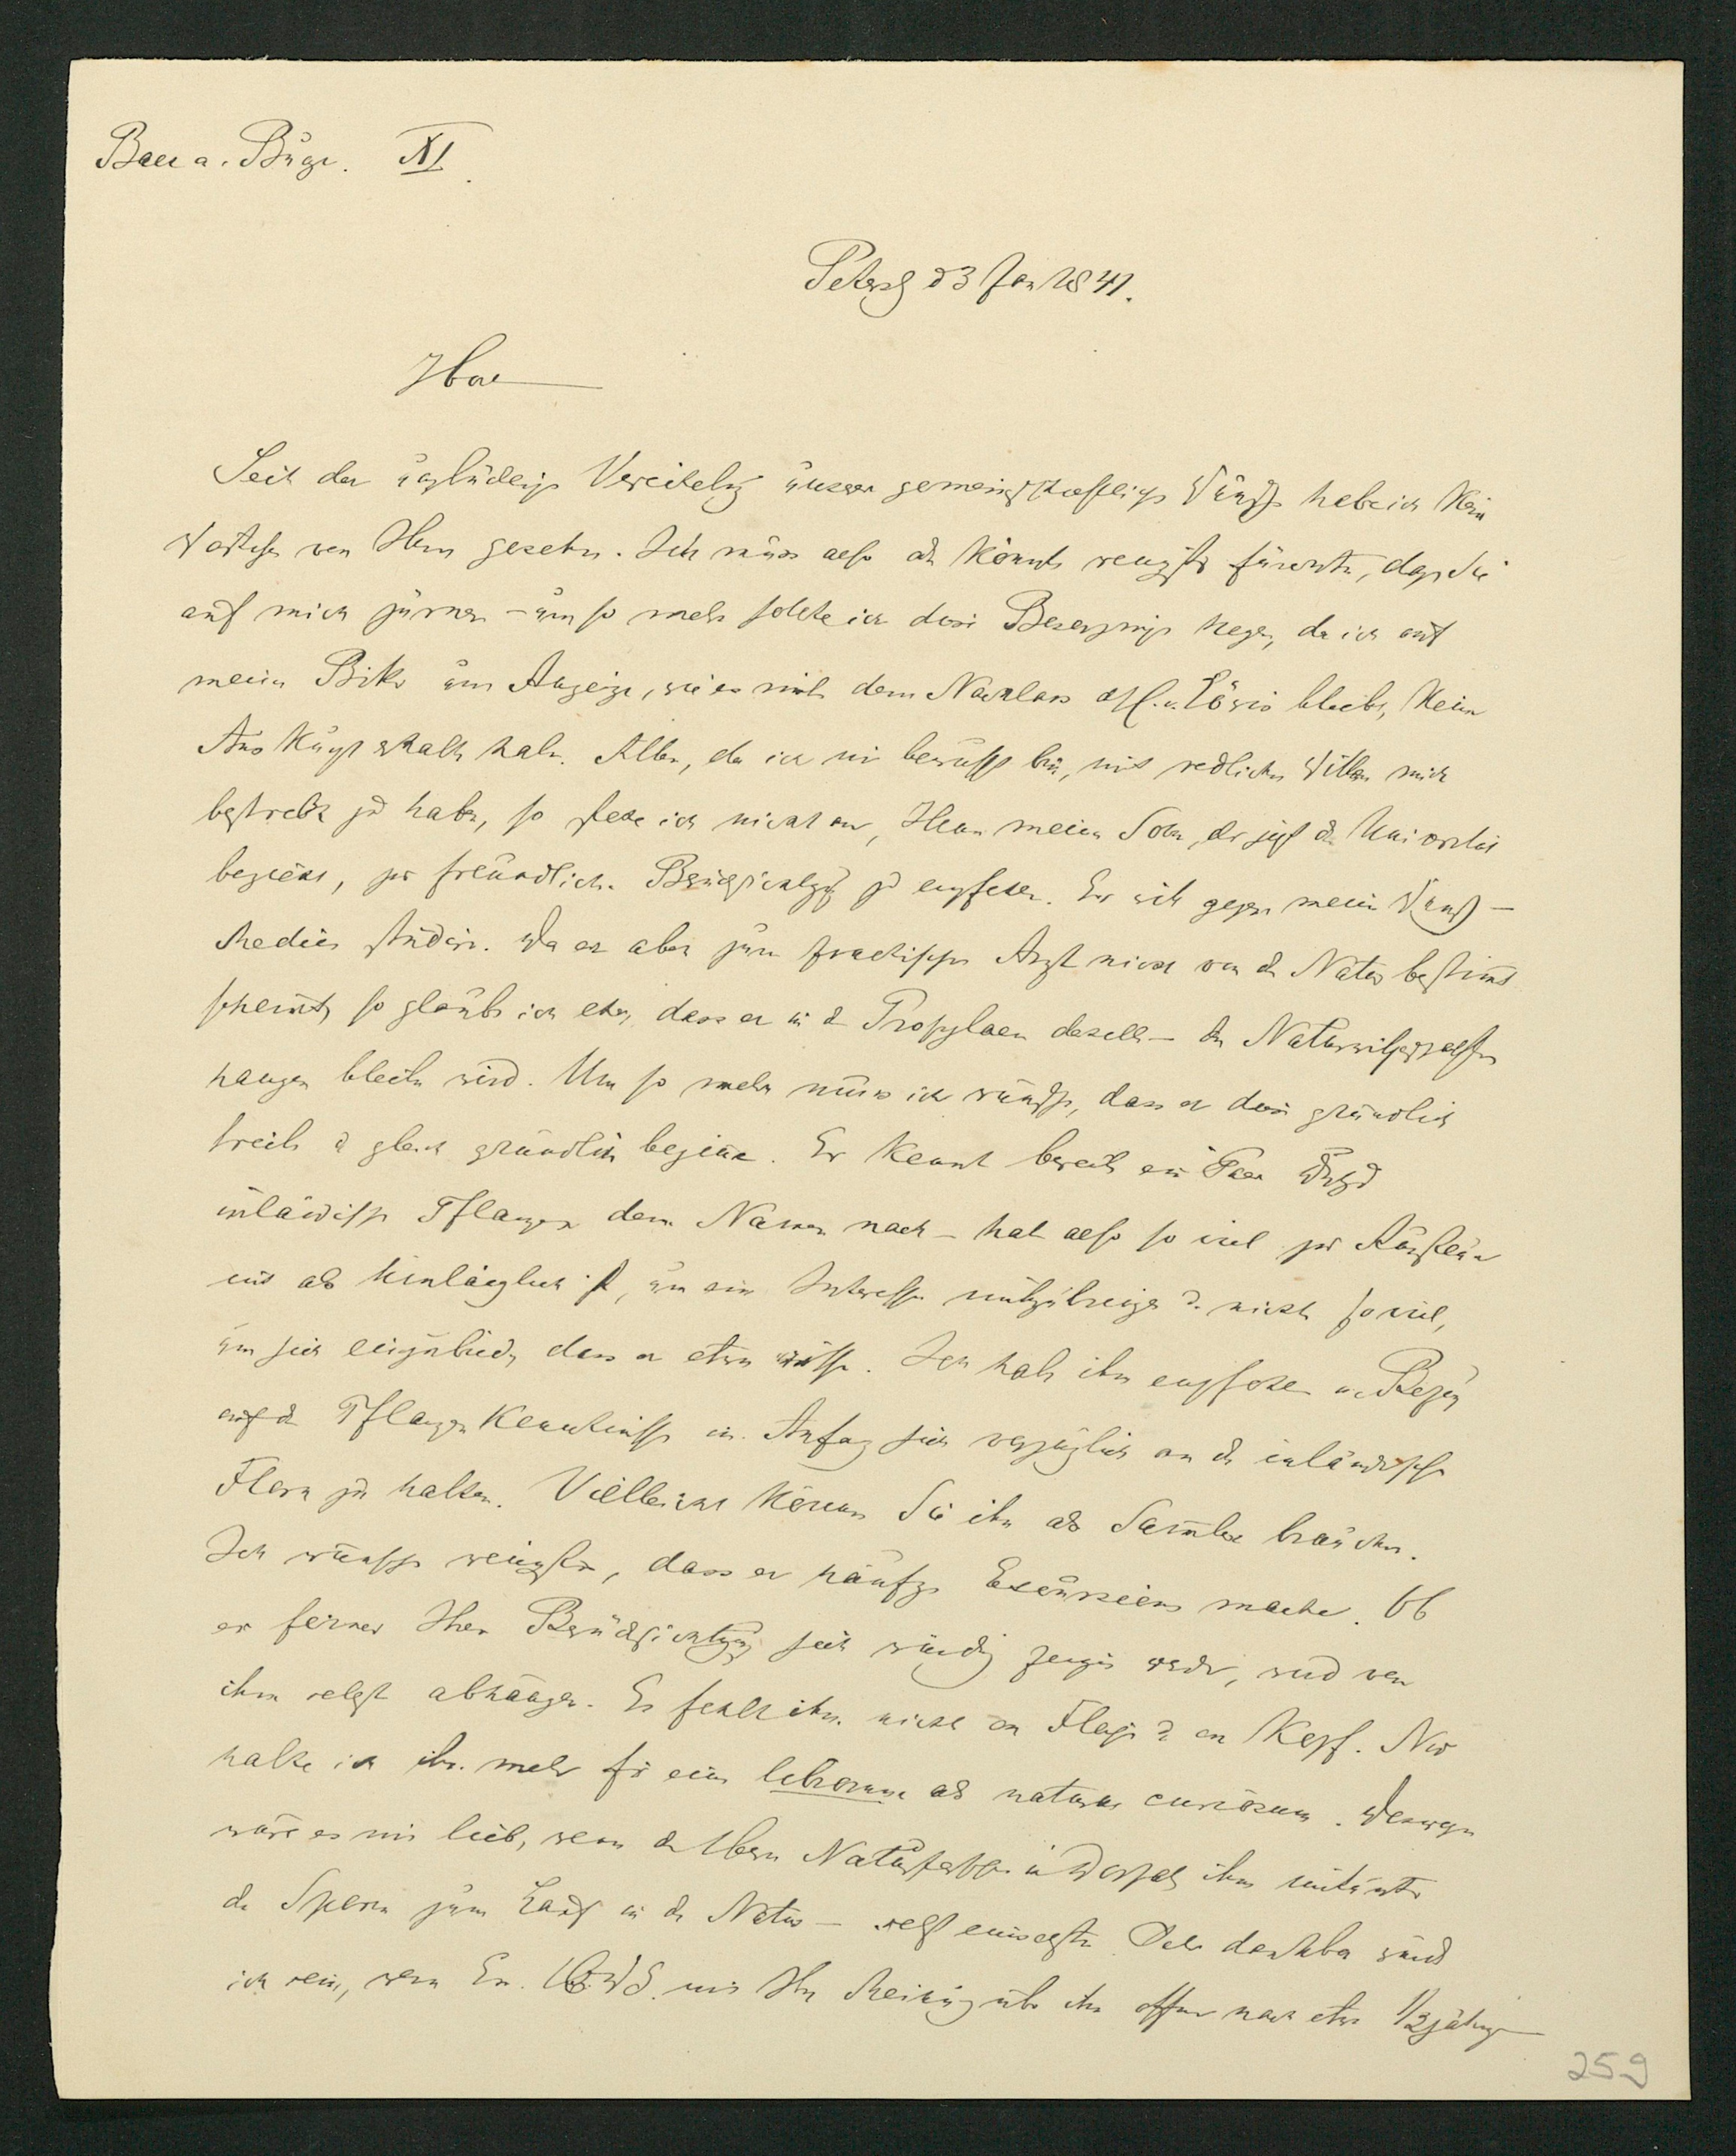 Baer a. Bunge. XI.
Petersb d 3 Jan 1841.
Seit der unglücklichen Vereitelung unserer gemeinschaftlichen Wünsche habe ich kein
von Ihnen gesehen. Ich muss also od könnte wenigstens fürchten, dass Sie
auf mich zürnen – um so mehr sollte ich diese Besorgniss hegen, da ich auf
meine Bitte um Anzeige, wie es mit dem Nachlass d H. v. Löwis bleibt, keine
Auskunft erhalten habe. Allein, da ich mir bewusst bin, mit redlichem Willen mich
bestrebt zu haben, so stehe ich nicht an, Ihnen meinen Sohn, der jetzt die Universität
bezieht, zur freundlichen Berücksichtigung zu empfehlen. Er will gegen meinen Wunsch –
Medicin studiren. Da er aber zum practischen Arzt nicht von der Natur bestimmt
scheint, so glaube ich eher, dass er in d Propyläen derselben – den Naturwissenschaften
hangen bleiben wird. Um so mehr muss ich wünschen, dass er diese gründlich
treibe u gleich gründlich beginne. Er kennt bereits ein Paar
inländische Pflanzen dem Namen nach – hat also so viel
als hinlänglich ist, um ein Interesse mitzubringen u. nicht so viel,
um sich einzubilden, dass er etwas wüsste. Ich habe ihm empfohlen in Bezug
auf d Pflanzenkenntnisse im Anfang sich vorzüglich an die inländische
Flora zu halten. Vielleicht können Sie ihn als Sammler brauchen.
Ich wünsche wenigstens, dass er häufige Excursionen mache. Ob
er ferner Ihrer Berücksichtigung sich würdig zeigen werde, wird von
ihm selbst abhängen. Es fehlt ihm nicht an Fleiss u an Kopf. Nur
halte ich ihn mehr für einen als naturae curiosum. Deswegen
wäre es mir lieb, wenn die Herrn Naturforscher in Dorpat ihm mitunter
die Sporen zum Lauf in die Natur – selbst einsetzten. Sehr dankbar würde
ich sein, wenn Ew. mir Ihre Meinung über ihn offen nach etwa 1/2 jähriger
259